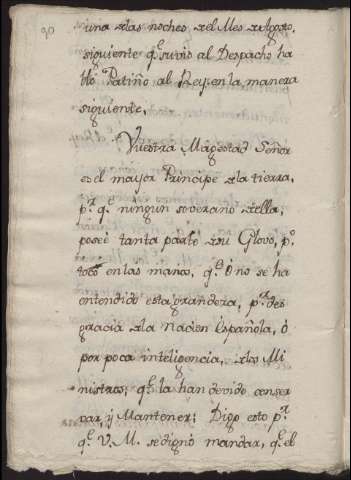 90
una de las noches del Mes de Agosto,
siguiente qe. suvio al Despacho ha
bló Patiño al Rey en la manera
siguiente.
Vuestra Magestad Señor
es el mayor Principe de la tierra,
pr. qe. ningun soverano de ella,
poseé tanta parte de su Globo, po.
todos en las manos, qe. ó no se ha
entendido esta grandeza, pr. des
gracia de la Nacion Española, ó
por poca inteligencia, de los Mi
nistros; qe. la han devido conser
var, y Mantener; Digo esto pr.
qe. V. M. se dignó mandar, qe. el